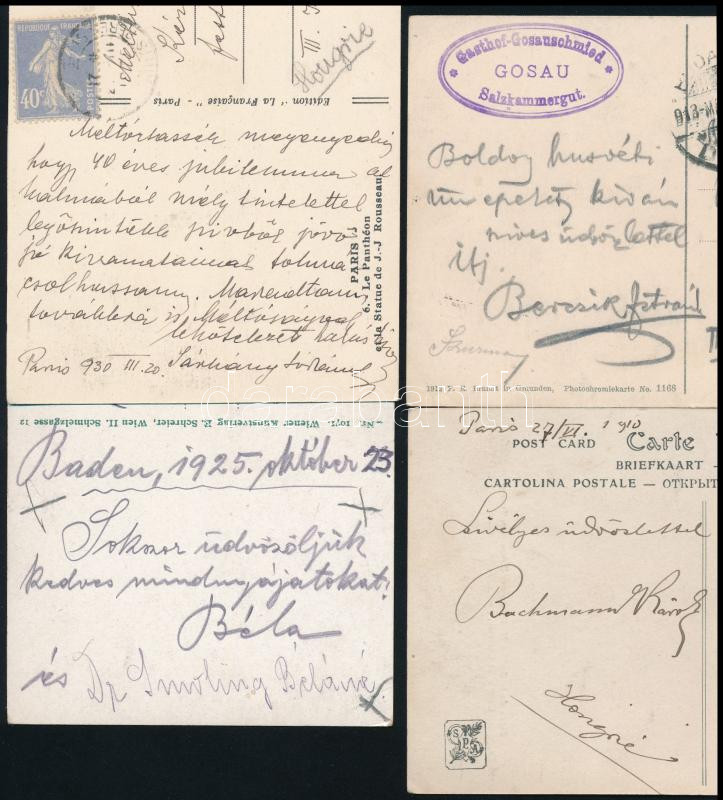 REPUBLIQUE FRANÇAISE
40c
POSTES
Kéz
fest
III. 
Hongrie
Edition "La Française" - Paris
Méltóztassék megengedni
hogy 40 éves jubileuma al-
kalmából mély tisztelettel
legőszintébb szívből jövő
jó kívánataimmal
Maradtam
továbbra is Méltóságod
lekötelezett hálás
Paris 930 III. 20. Sárkány
PARIS
6. Le Panthéon
et la Statue de J.-J. Rousseau
Gasthof-Gosauschmied
GOSAU
Salzkammergut.
913
Boldog husvéti
ünnepeket kíván
szives üdvözlettel
ifj.
Bercsik
191 F. E. Gmunden, Photochromiekarte No. 1168
Nr. 1071. Wiener Kunstverlag E. Schreier, Wien II. Schmelzgasse 12
Baden, 1925. október 23.
Sokszor üdvözöljük
kedves mindnyájatokat:
Béla
és Dr Béláné
Paris 27/VI. 1910
POST CARD Carte
BRIEFKAART —
CARTOLINA POSTALE — ОТКРЫТ
Szívélyes üdvözlettel
Bachmann Károly
Hongrie
SPA
darabanth